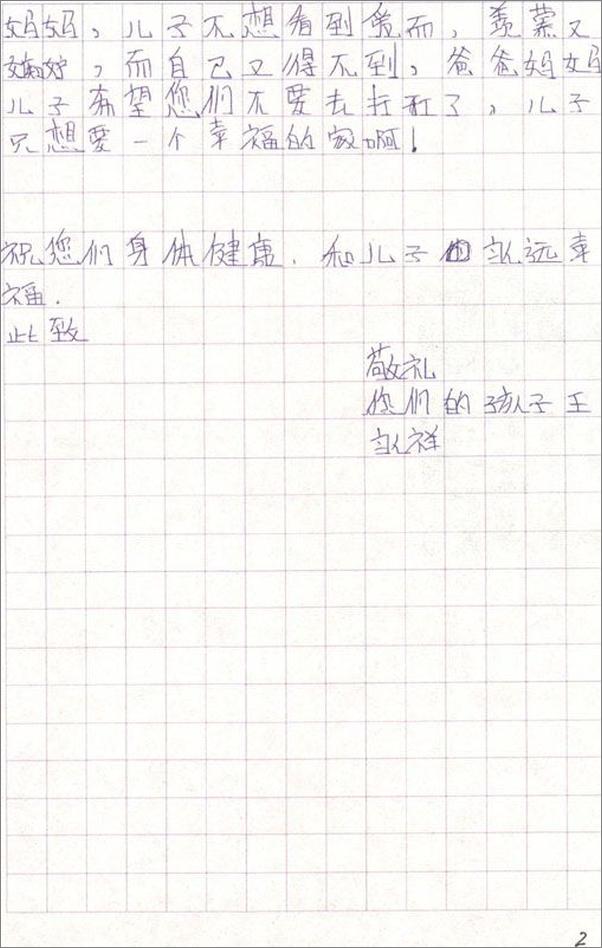 妈妈，儿子不想看到爱而，羡慕又
嫉妒，而自己又得不到，爸爸妈妈
儿子希望您们不要去打工了，儿子
只想要一个幸福的家啊！
祝您们身体健康．和儿子永远幸
福．
此致
敬礼
您们的孩子王
永祥
2